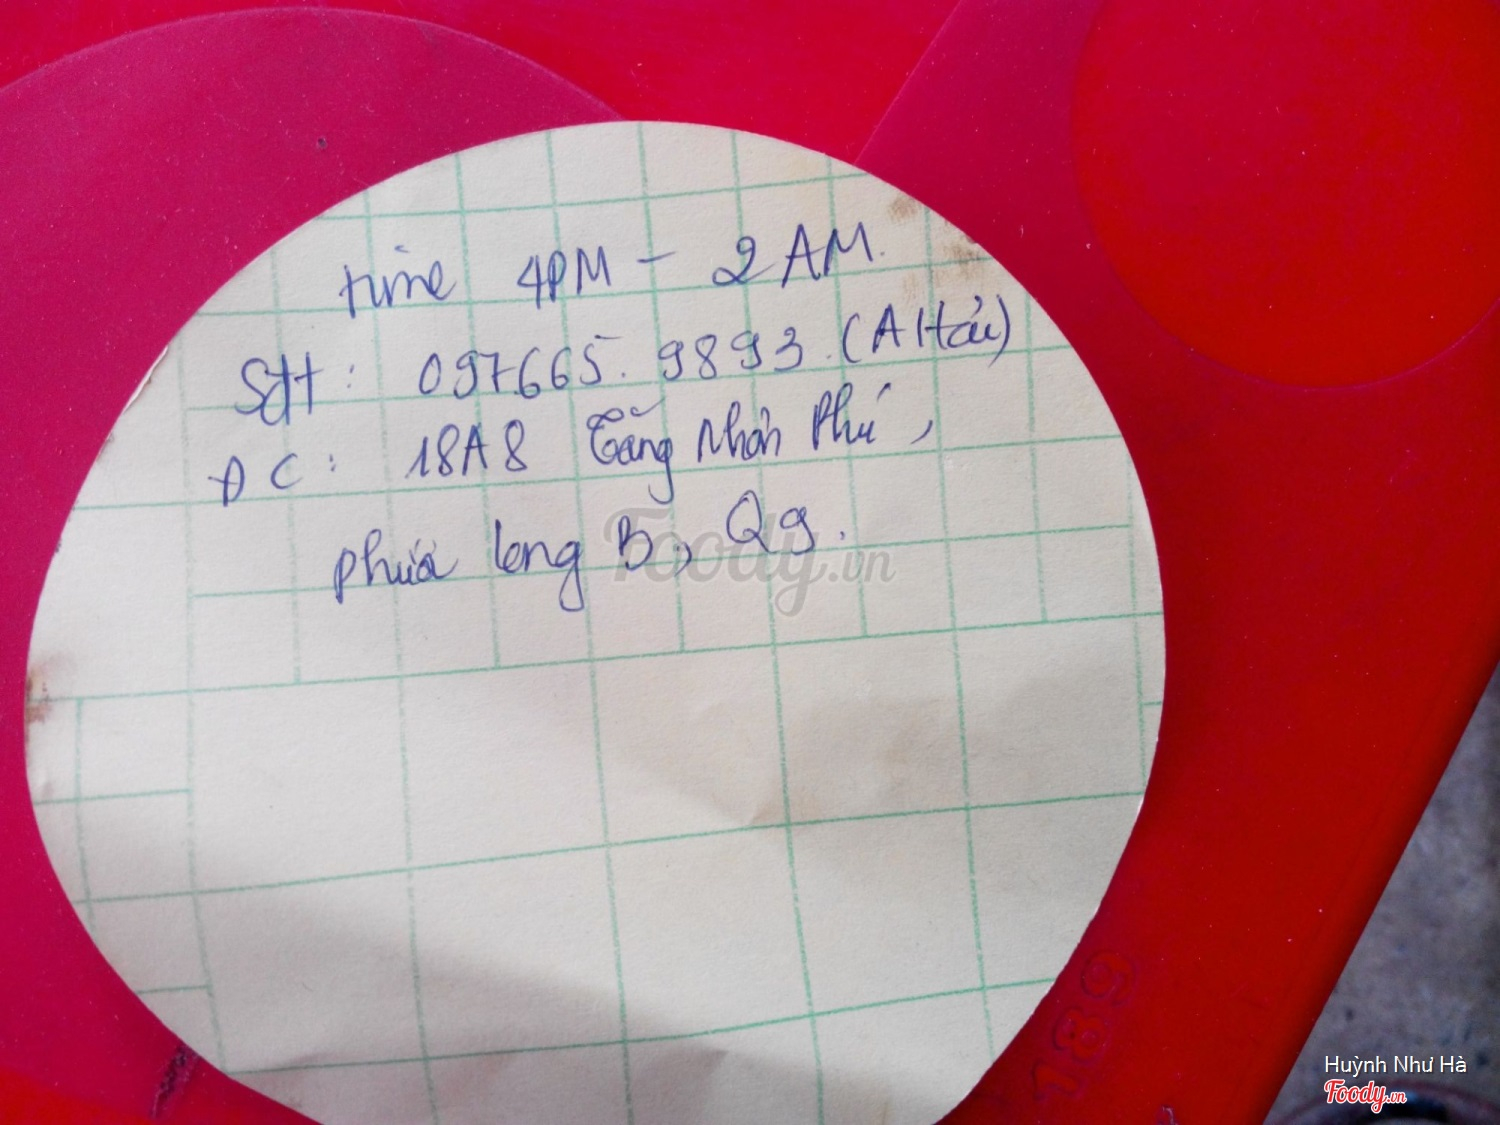 time 4PM - 2AM.
SĐT: 097.665.9893.(A Hải)
ĐC: 18A8 Tăng Nhơn Phú,
phước long B, Q9.
Foody.vn
189
Huỳnh Như Hà
Foody.vn